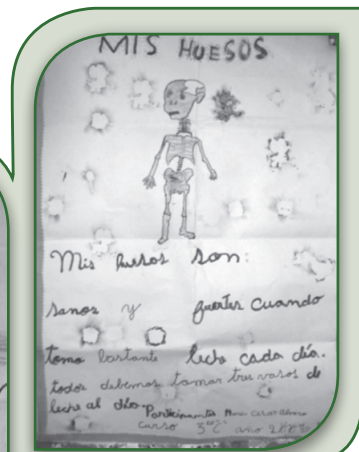 MIS HUESOS
Mis huesos son:
sanos y fuertes cuando
tomo bastante leche cada día.
todos debemos tomar tres vasos de
leche al día. Participante
Curso 3º "C" año